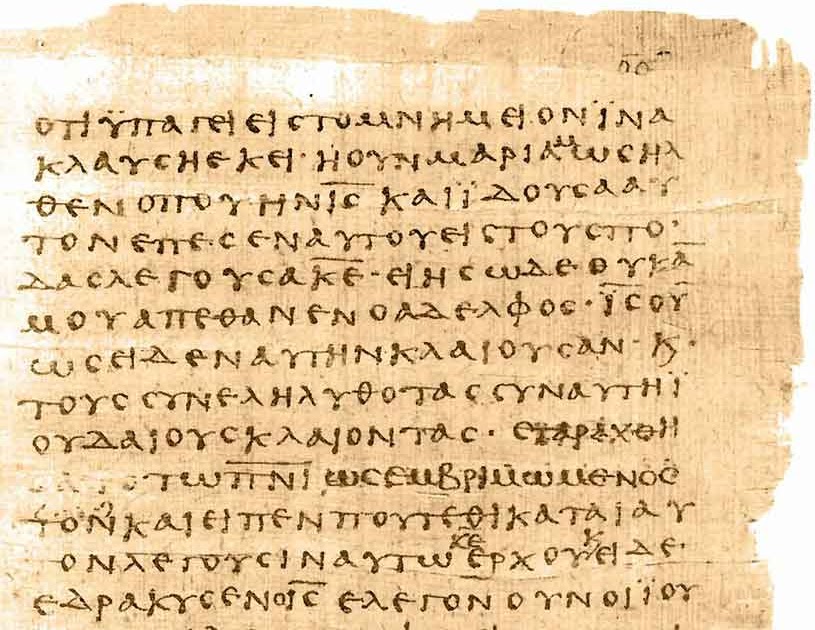 ΟΤΙ ΫΠΑΓΕΙ ΕΙϹ ΤΟ ΜΝΗΜΕΙΟΝ ΪΝΑ
ΚΛΑΥϹΗ ΕΚΕΙ· Η ΟΥΝ ΜΑΡΙΑΜ ΩϹ ΗΛ
ΘΕΝ ΟΠΟΥ ΗΝ Ι̅Ϲ̅ ΚΑΙ ΪΔΟΥϹΑ ΑΥ
ΤΟΝ ΕΠΕϹΕΝ ΑΥΤΟΥ ΕΙϹ ΤΟΥϹ ΠΟ
ΔΑϹ ΛΕΓΟΥϹΑ Κ̅Ε̅· ΕΙ ΗϹ ΩΔΕ ΟΥΚ Α̅
ΜΟΥ ΑΠΕΘΑΝΕΝ Ο ΑΔΕΛΦΟϹ· Ι̅Ϲ̅ ΟΥ̅
ΩϹ ΕΙΔΕΝ ΑΥΤΗΝ ΚΛΑΙΟΥϹΑΝ· Κ·
ΤΟΥϹ ϹΥΝΕΛΗΛΥΘΟΤΑϹ ϹΥΝ ΑΥΤΗ Ϊ
ΟΥΔΑΙΟΥϹ ΚΛΑΙΟΝΤΑϹ· ΕΤΑΡΑΧΘΗ
ΤΩ Π̅Ν̅Ι̅ ΩϹ ΕΜΒΡΙΜΩΜΕΝΟϹ
ΤΟΝ ΚΑΙ ΕΙΠΕΝ ΠΟΥ ΤΕΘΙΚΑΤΑΙ ΑΥ
ΤΟΝ ΛΕΓΟΥϹΙΝ ΑΥΤΩ Κ̅Ε̅ ΕΡΧΟΥ Κ ΕΙΔΕ·
ΕΔΡΑΚΥϹΕΝ Ο Ι̅Ϲ̅ ΕΛΕΓΟΝ ΟΥΝ ΟΙ ΪΟΥ